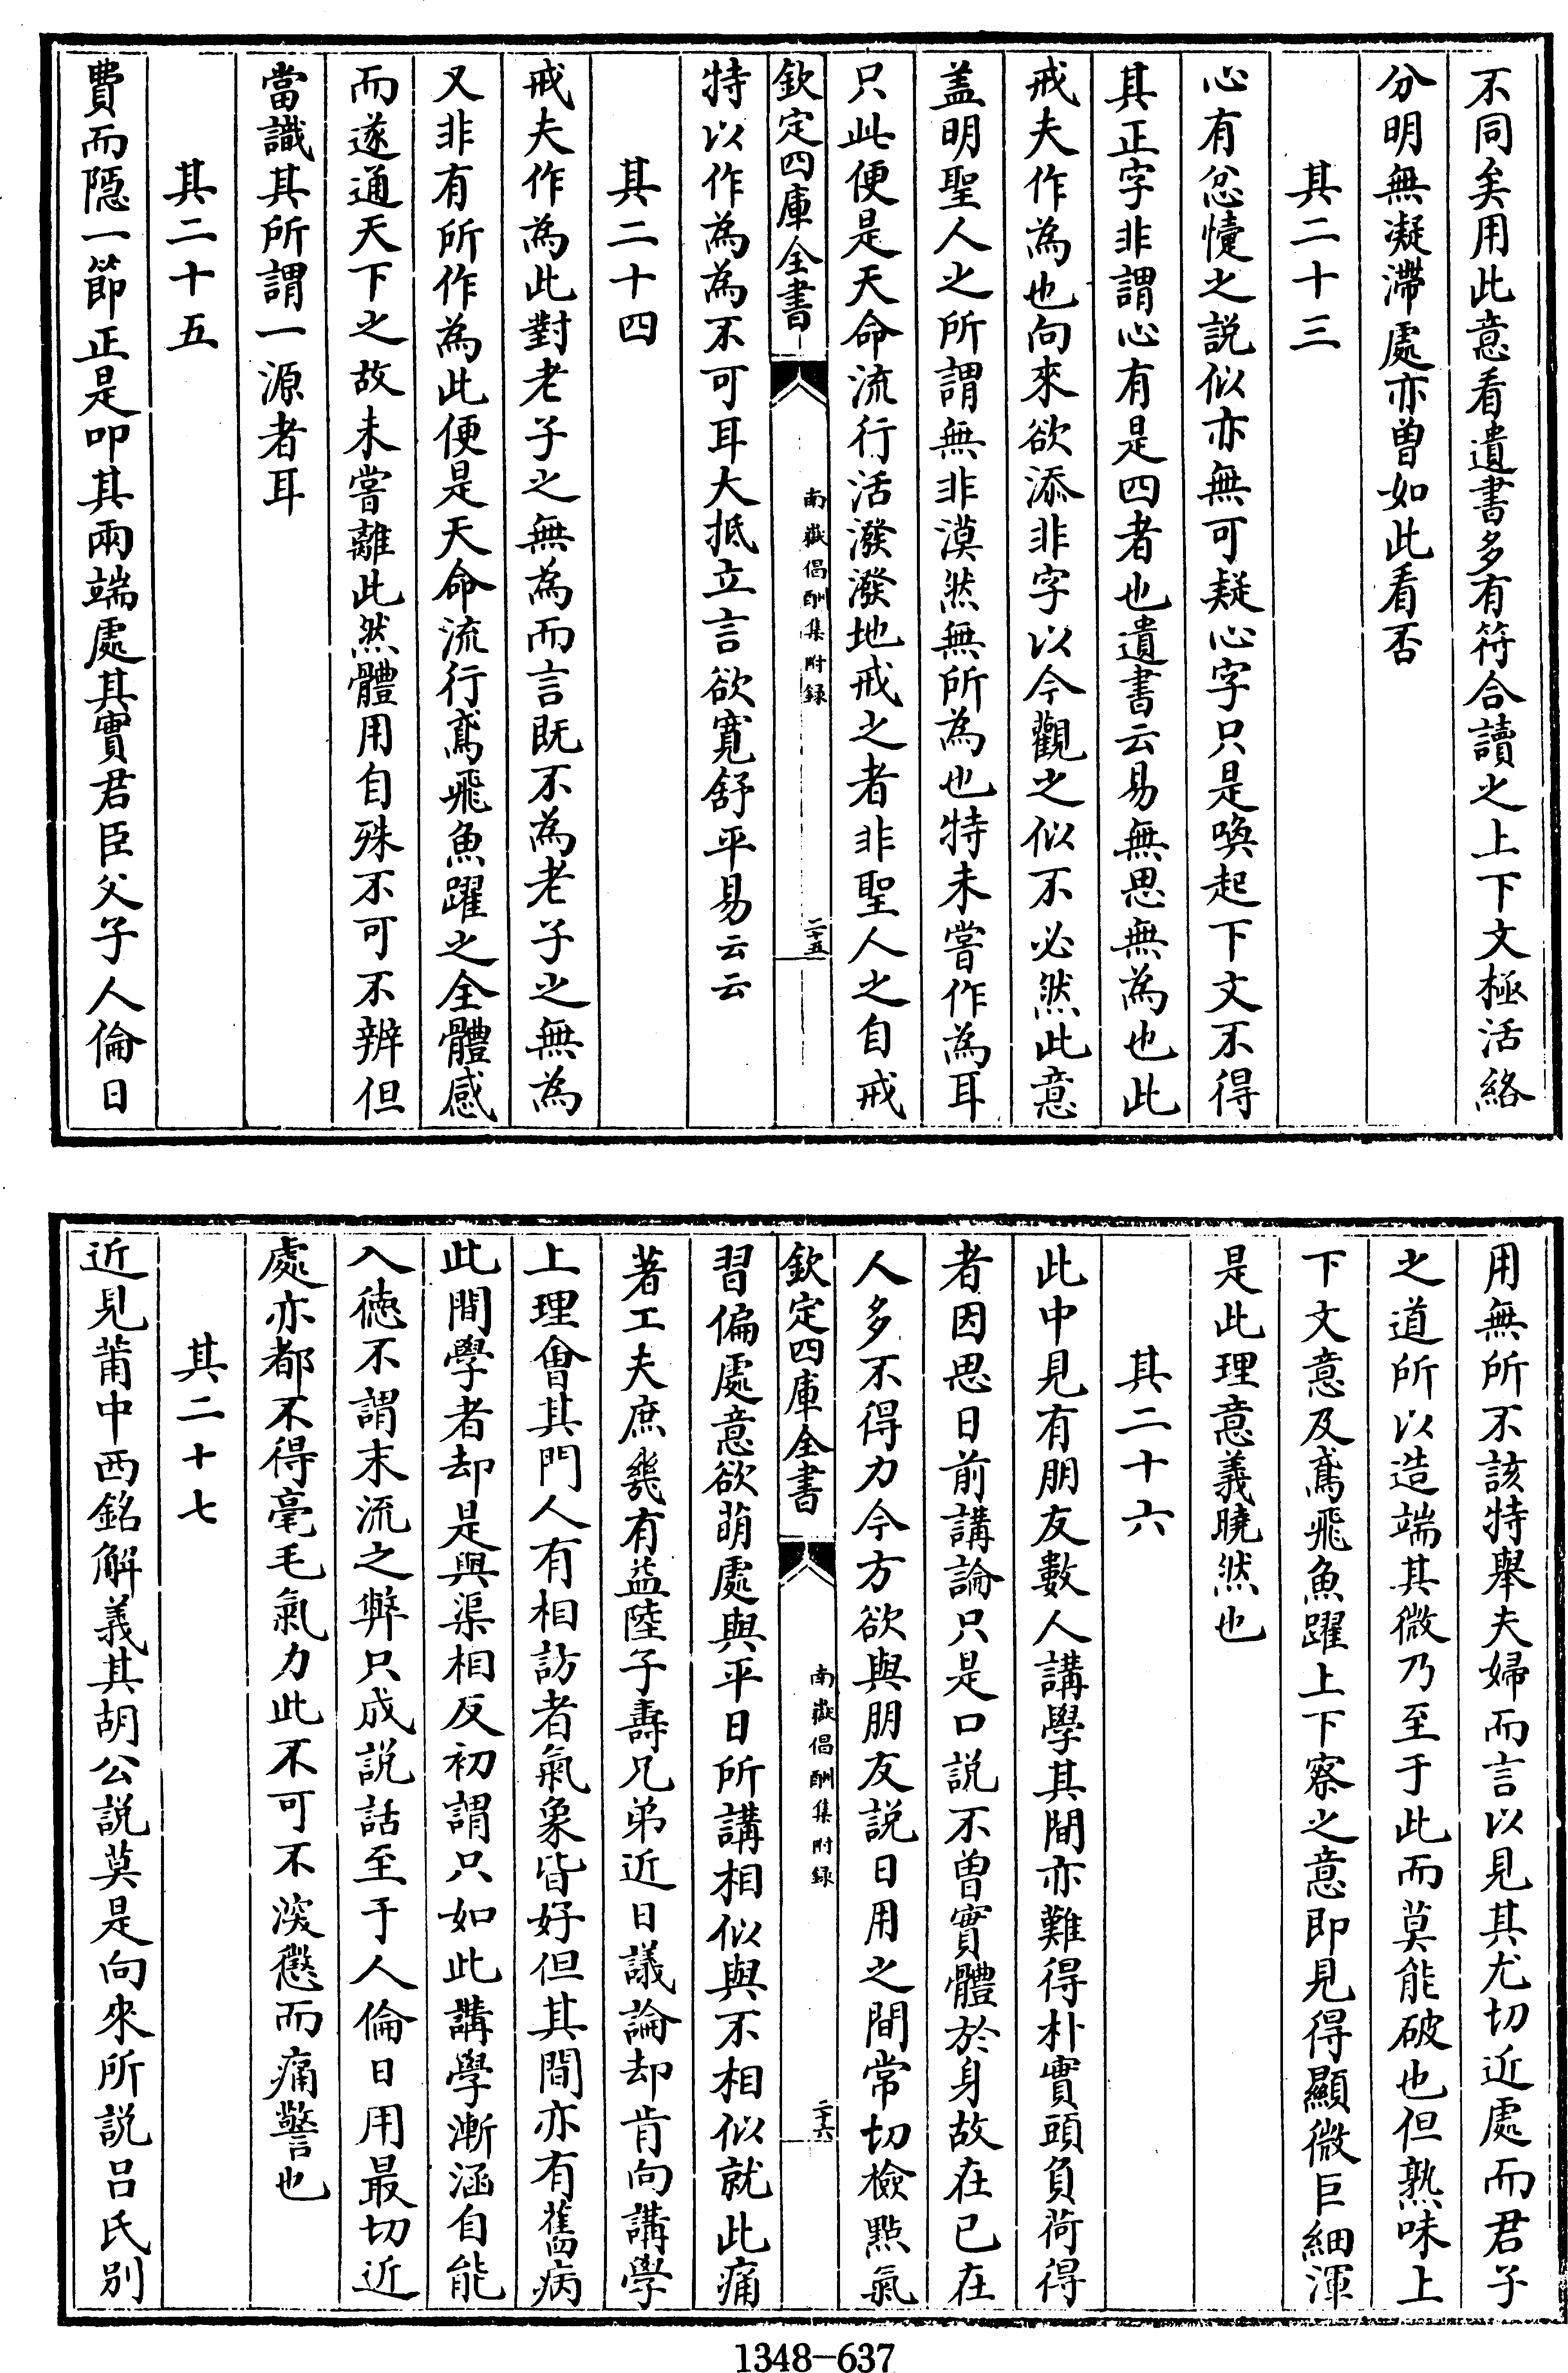 不同矣用此意看遺書多有符合讀之上下文極活絡
分明無凝滯處亦曾如此看否
其二十三
心有忿懥之説似亦無可疑心字只是喚起下文不得
其正字非謂心有是四者也遺書云易無思無為也此
戒夫作為也向來欲添非字以今觀之似不必然此意
盖明聖人之所謂無非漠然無所為也特未嘗作為耳
只此便是天命流行活潑潑地戒之者非聖人之自戒
欽定四庫全書
南嶽倡酬集附録
二十五
特以作為為不可耳大抵立言欲寬舒平易云云
其二十四
戒夫作為此對老子之無為而言既不為老子之無為
又非有所作為此便是天命流行鳶飛魚躍之全體感
而遂通天下之故未嘗離此然體用自殊不可不辨但
當識其所謂一源者耳
其二十五
費而隠一節正是叩其兩端處其實君臣父子人倫日
用無所不該特舉夫婦而言以見其尤切近處而君子
之道所以造端其微乃至于此而莫能破也但熟味上
下文意及鳶飛魚躍上下察之意即見得顯微巨細渾
是此理意義曉然也
其二十六
此中見有朋友數人講學其間亦難得朴實頭負荷得
者因思日前講論只是口説不曾實體於身故在已在
人多不得力今方欲與朋友説日用之間常切檢㸃氣
欽定四庫全書
南嶽倡酬集附録
二十六
習偏處意欲萌處與平日所講相似與不相似就此痛
著工夫庶㡬有益陸子壽兄弟近日議論却肯向講學
上理會其門人有相訪者氣象皆好但其間亦有舊病
此間學者却是與渠相反初謂只如此講學漸涵自能
入徳不謂末流之弊只成説話至于人倫日用最切近
處亦都不得毫毛氣力此不可不深懲而痛警也
其二十七
近見莆中西銘解義其胡公説莫是向來所説吕氏别
1348-637